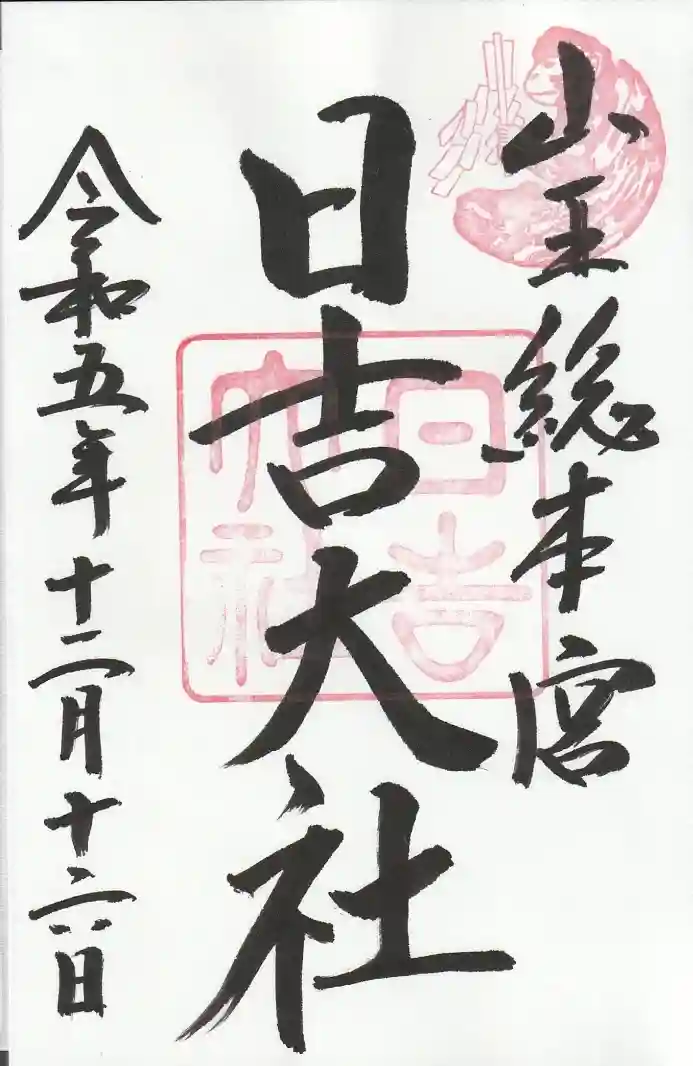 山王総本宮
日吉大社
日吉大社
令和五年十二月十六日